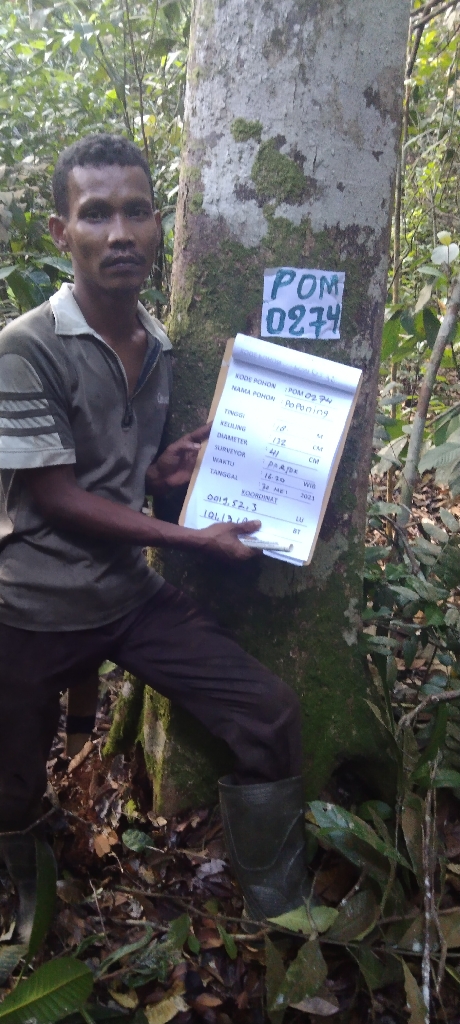 POM
0274
KODE POHON : POM 0274
NAMA POHON : POPONING
TINGGI 18 M
KELILING 132 CM
DIAMETER 41 CM
SURVEYOR
WAKTU 16.20 WIB
TANGGAL 30 MEI 2021
KOORDINAT
0019.52.3 LU
BT